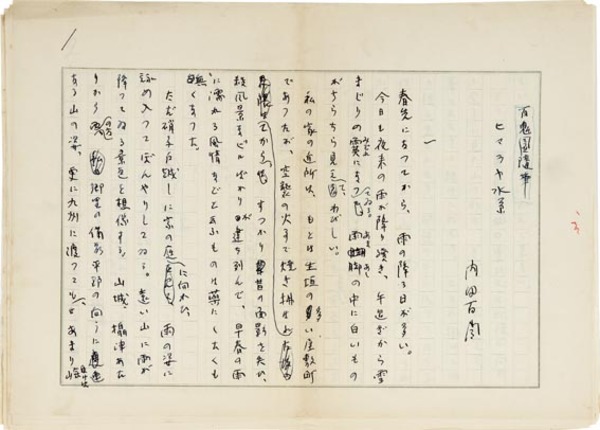 1
百鬼園随筆
ヒマラヤ水系
内田百閒
一
春先になつてから、雨の降る日が多い。
今日も夜来の雨が降り續き、午過ぎから雪
まじりの霙になつて、雨脚の中に白いもの
がちらちら見えて
私の家の近所は、もとは生垣の多い屋敷町
であつたが、空襲の火事で焼き拂
すつかり昔の面影を失ひ、
殺風景なビルばかりが建ち列んで、早春の雨
に濡れる風情などと云ふものは薬にしたくも
無くなつた。
ただ硝子戸越しに家の庭に向かひ、雨の姿に
詠め入つてぼんやりしてゐる。遠い山に雨が
降つてゐる景色を想像する。山城、攝津あた
りから 郷里の備前平野の向うに
ある山の姿、更に九州に渡つて あまり